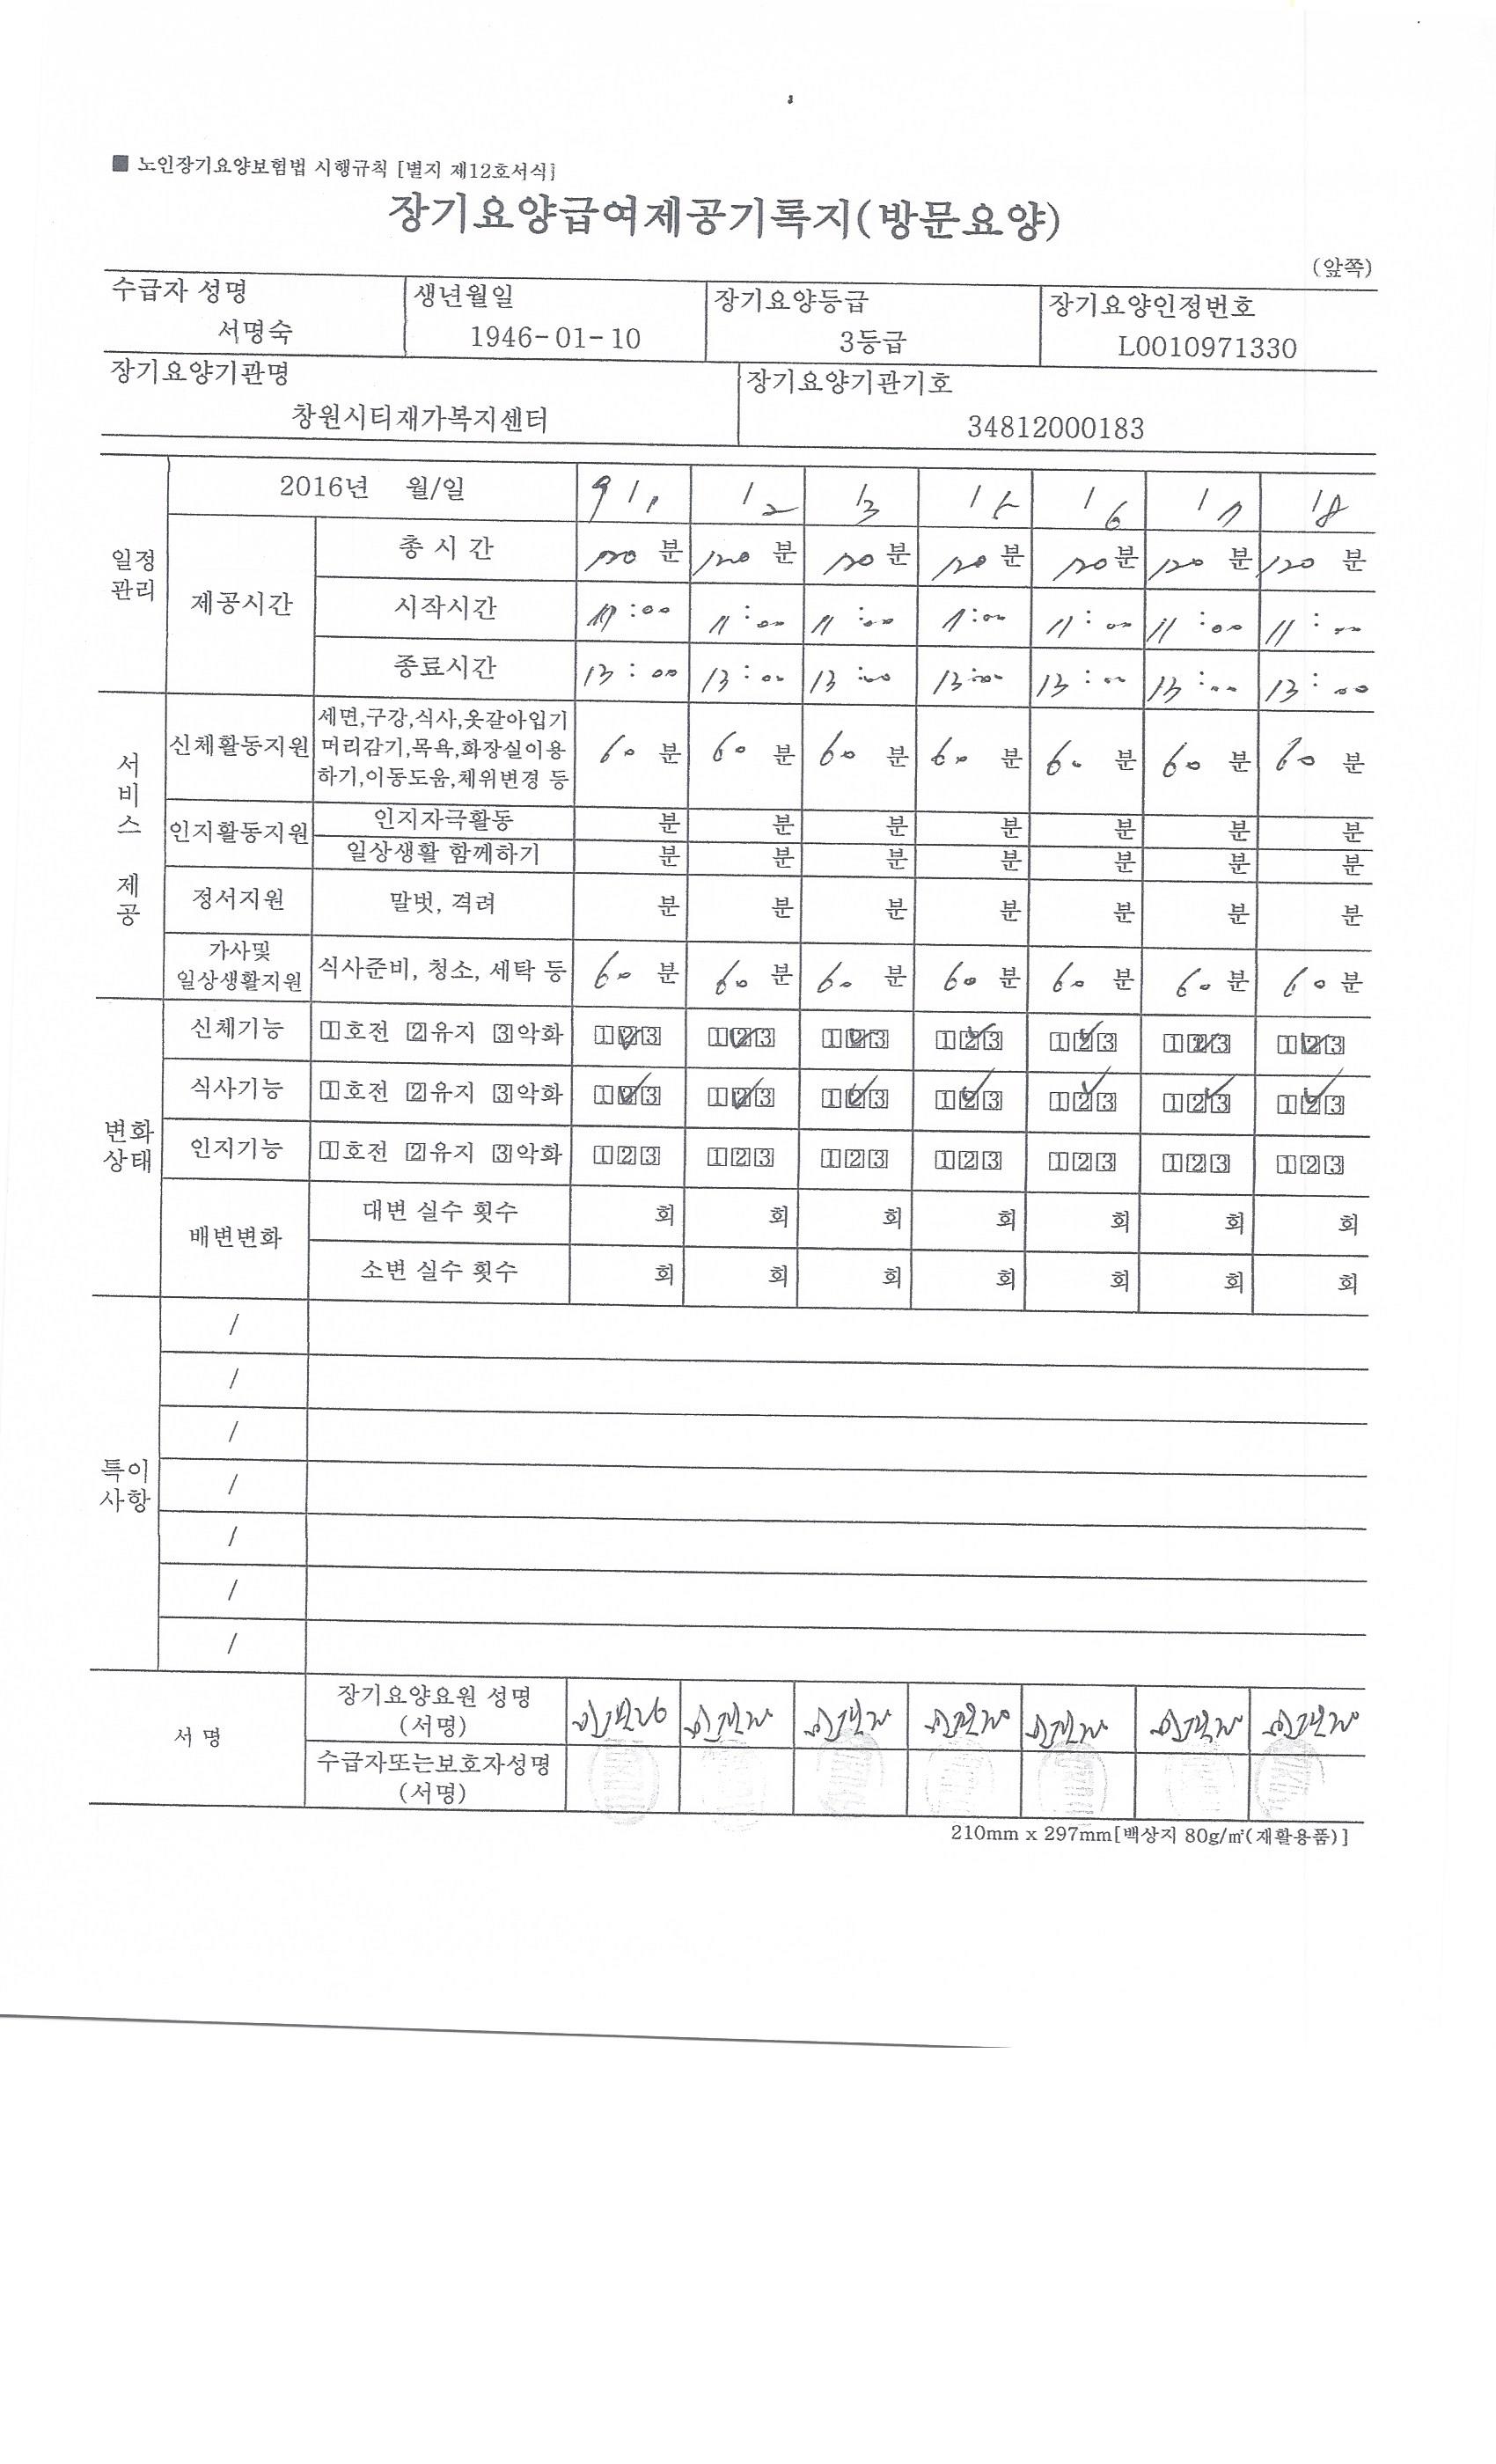 ■ 노인장기요양보험법 시행규칙 [별지 제12호서식]
장기요양급여제공기록지(방문요양)
(앞쪽)
수급자 성명 생년월일 장기요양등급 장기요양인정번호
서명숙 1946-01-10 3등급 L0010971330
장기요양기관명 장기요양기관기호
창원시티재가복지센터 34812000183
일정관리 2016년 월/일 9/1 /2 /3 /5 /6 /7 /8
제공시간 총 시 간 120 분 120 분 120 분 120 분 120 분 120 분 120 분
시작시간 11:00 11:00 11:00 11:00 11:00 11:00 11:00
종료시간 13:00 13:00 13:00 13:00 13:00 13:00 13:00
서비스 제공 신체활동지원 세면,구강,식사,옷갈아입기
머리감기,목욕,화장실이용
하기,이동도움,체위변경 등 60 분 60 분 60 분 60 분 60 분 60 분 60 분
인지활동지원 인지자극활동 분 분 분 분 분 분 분
일상생활 함께하기 분 분 분 분 분 분 분
정서지원 말벗, 격려 분 분 분 분 분 분 분
가사및
일상생활지원 식사준비, 청소, 세탁 등 60 분 60 분 60 분 60 분 60 분 60 분 60 분
변화상태 신체기능 1호전 2유지 3악화 123 123 123 123 123 123 123
식사기능 1호전 2유지 3악화 123 123 123 123 123 123 123
인지기능 1호전 2유지 3악화 123 123 123 123 123 123 123
배변변화 대변 실수 횟수 회 회 회 회 회 회 회
소변 실수 횟수 회 회 회 회 회 회 회
특이사항 /
/
/
/
/
/
/
서 명 장기요양요원 성명
(서명)
수급자또는보호자성명
(서명)
210mm x 297mm[백상지 80g/㎡(재활용품)]